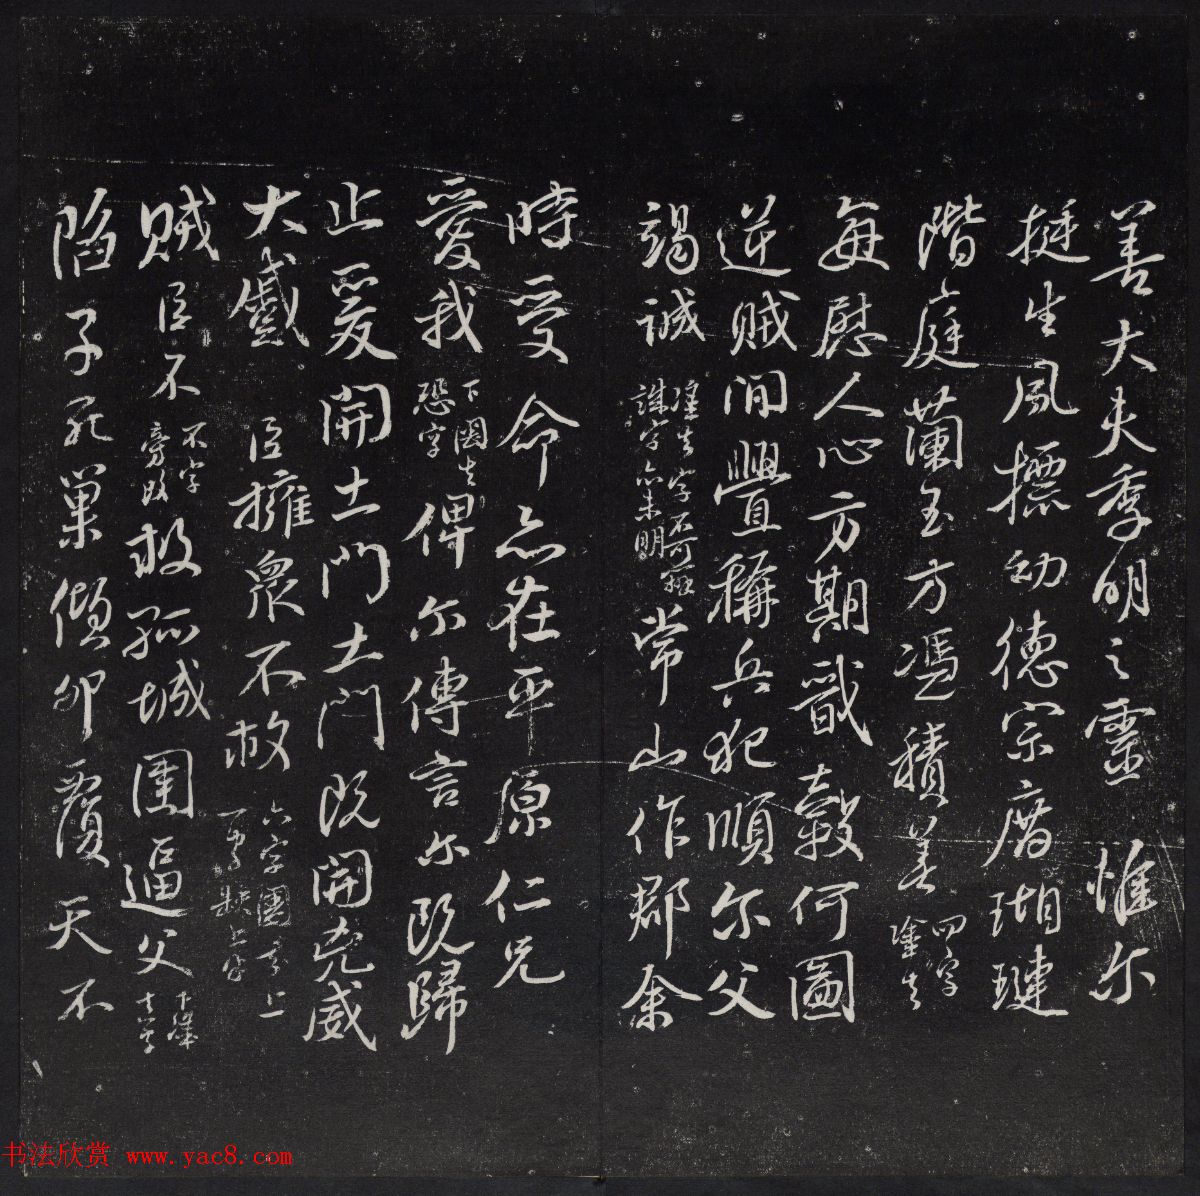 善大夫季明之靈惟尔
挺生夙標幼德宗廟瑚璉
階庭蘭玉方憑積善四字塗去
每慰人心方期戩穀何圖
逆賊閒釁稱兵犯順尔父
竭誠去字不可辨誅字亦未明常山作郡余
時受命亦在平原仁兄
愛我下圈去恐字俾尔傳言尔既歸
止爰開土門土門既開兇威
大蹙臣擁衆不救六字圈去上
賊臣不不字旁改救孤城圍逼父
陷子死巢傾卵覆天不
书法欣赏 www.yac8.com